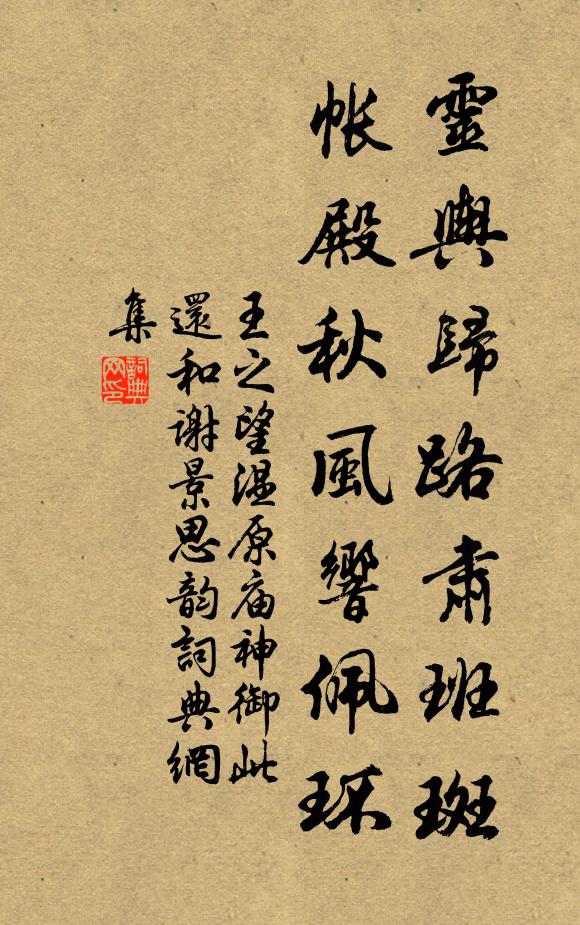 靈輿歸路肅班斑
帳殿秋風響佩环
王之望温原庙神御此
還和谢景思韵詞典網
集
詞典網印